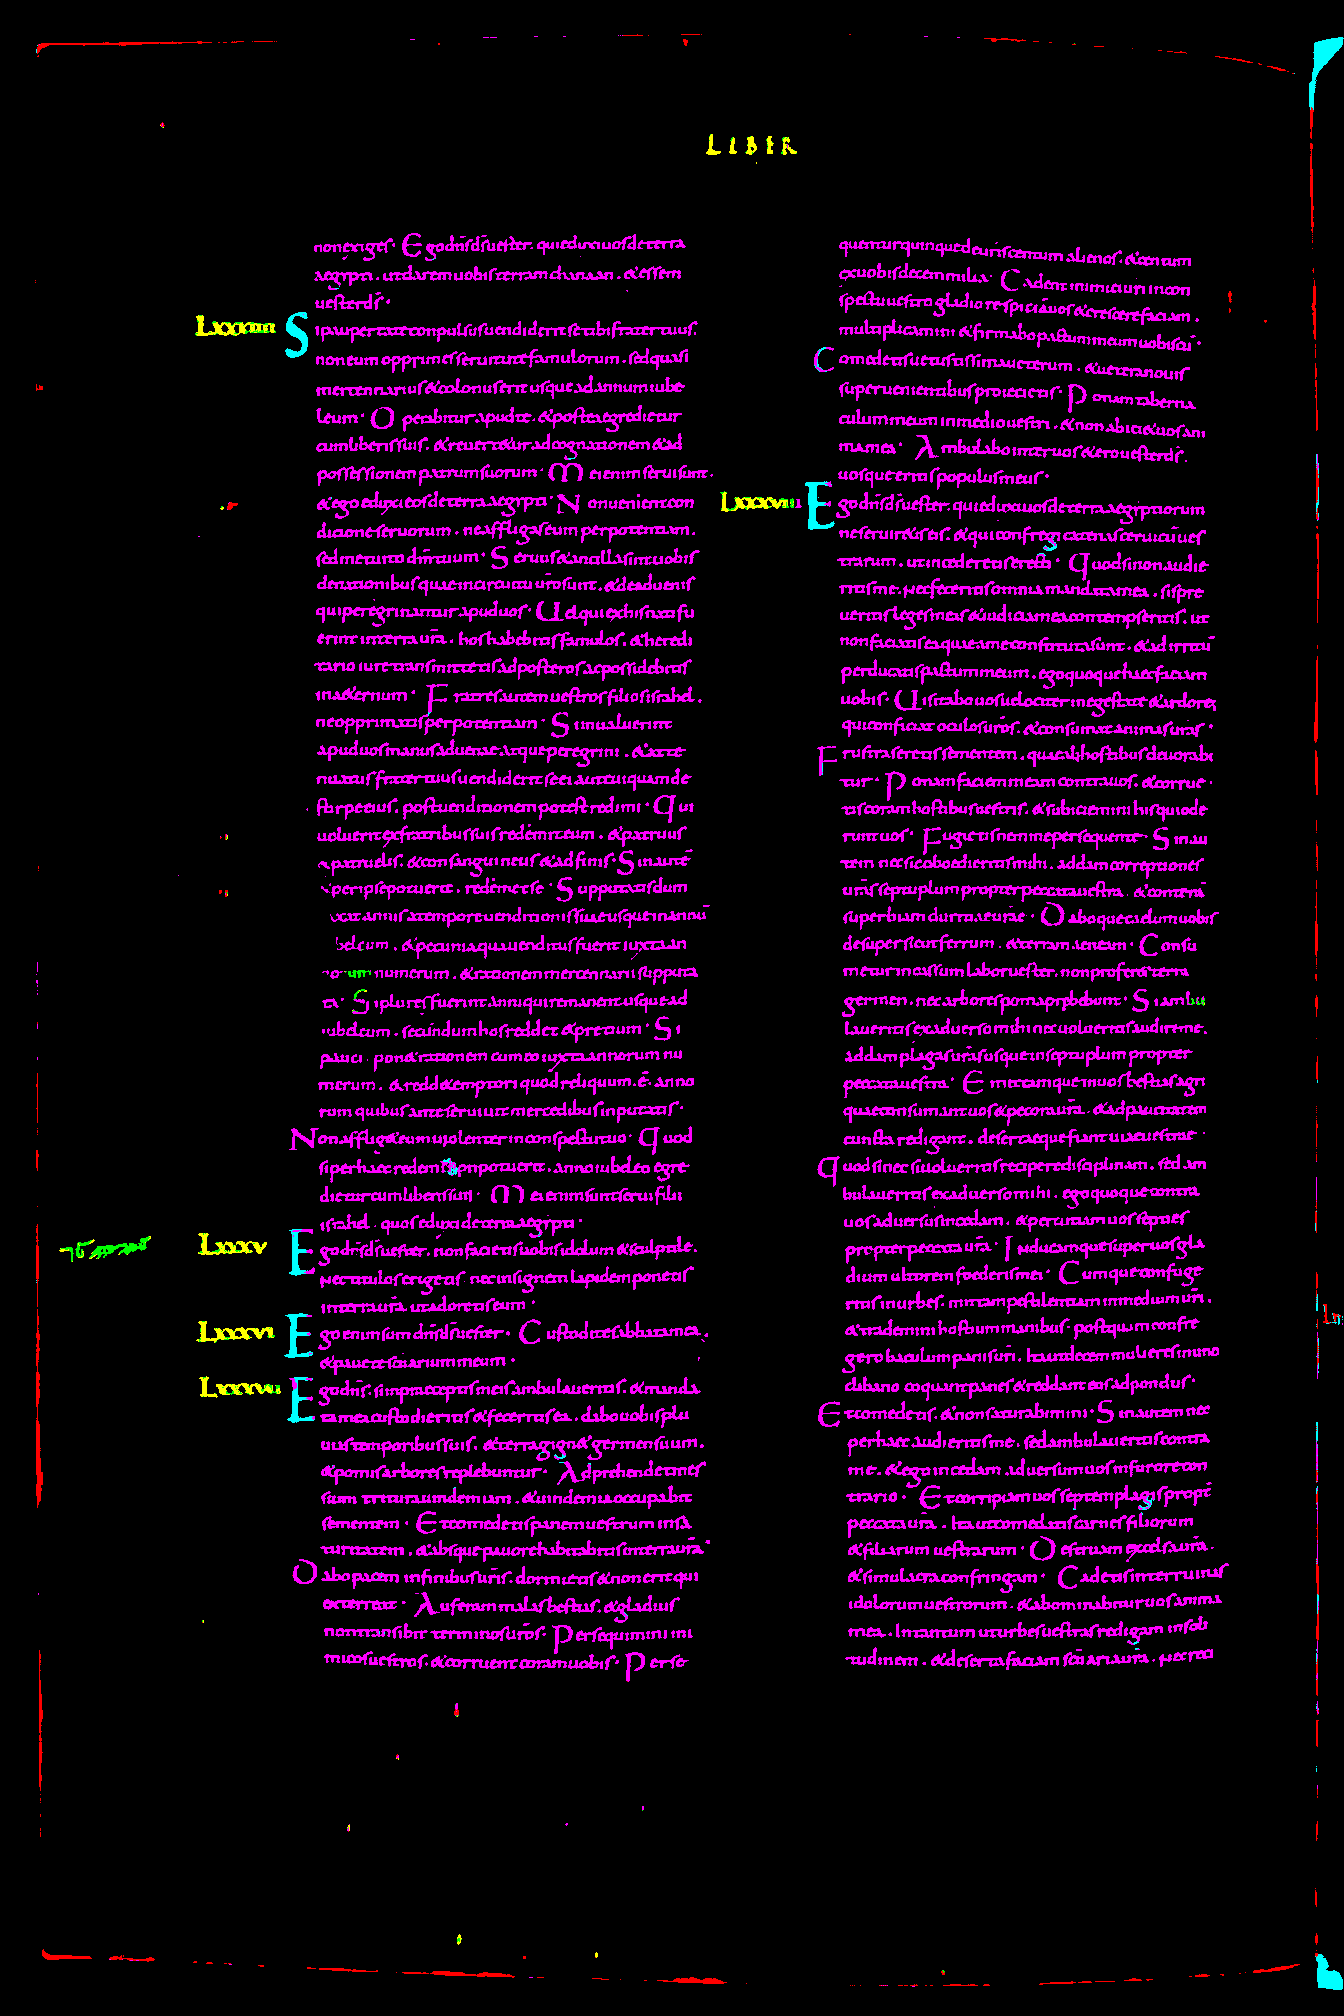 LIBER
non exiges. Ego dn̄s ds̄ uester. qui eduxi uos de terra
aegypti. ut darem uobis terram chanaan. & essem
uester ds̄.
Lxxxiiii Si paupertate conpulsus uendiderit se tibi frater tuus.
non eum opprimes seruitute famulorum. sed quasi
mercennarius & colonus erit usque ad annum iube
leum. Operabitur apud te. & postea egredietur
cum liberis suis. & reuert&ur ad cognationem & ad
possessionem patrum suorum. Mei enim serui sunt.
& ego eduxi eos de terra aegypti. Non uenient con
dicione seruorum. ne affligas eum per potentiam.
sed metuito dn̄m tuum. Seruus & ancilla sint uobis
de nationibus quae in circuitu ur̄o sunt. & de aduenis
qui peregrinantur apud uos. Uel qui ex his nati fu
erint in terra ur̄a. hos habebitis famulos. & heredi
tario iure transmittetis ad posteros ac possidebitis
in a&ernum. Fratres autem uestros filios israhel.
ne opprimatis per potentiam. Si inualuerit
apud uos manus aduenae atque peregrini. & atte
nuatus frater tuus uendiderit se ei aut cuiquam de
stirpe eius. post uenditionem potest redimi. Qui
uoluerit ex fratribus suis redemerit eum. & patruus
& patruelis. & consanguineus & adfinis. Sin aut̄
& per ipse potuerit. redim& se. Supputatis dum
taxat annis a tempore uenditionis suae usque in annū
beleum. & pecunia qua uenditus fuerit iuxta an
norum numerum. & rationem mercennarii supputa
ta. Si plures fuerint anni qui remanent usque ad
iubeleum. secundum hos redd& & pretium. Si
pauci. pon& rationem cum eo iuxta annorum nu
merum. & redd& emptori quod reliquum. ē. anno
rum quibus ante seruiuit mercedibus inputatis.
Non afflig& eum uiolenter in conspectu tuo. Quod
si per haec redemi non potuerit. anno iubeleo egre
dietur cum liberis suis. Mei enim sunt serui filii
israhel. quos eduxi de terra aegypti.
Lxxxv Ego dn̄s ds̄ uester. non facietis uobis idolum & sculptile.
Nec titulos erigetis. nec insignem lapidem ponetis
in terra ur̄a. ut adoretis eum.
Lxxxvi Ego enim sum dn̄s ds̄ uester. Custodite sabbata mea.
& pauete sc̄uarium meum.
Lxxxvii Ego dn̄s. si in praeceptis meis ambulaueritis. & manda
ta mea custodieritis & feceritis ea. dabo uobis plu
uias temporibus suis. & terra gign& germen suum.
& pomis arbores replebuntur. Adprehendet mes
sium tritura uindemiam. & uindemia occupabit
sementem. Et comedetis panem uestrum in sa
turitatem. & absque pauore habitabitis in terra ur̄a.
Dabo pacem in finibus ur̄is. dormietis & non erit qui
exterreat. Auferam malas bestias. & gladius
non transibit terminos ur̄os. Persequimini ini
micos uestros. & corruent coram uobis. Perse
quentur quinque de uris centum alienos. & centum
ex uobis decem milia. Cadent inimici uri in con
spectu uestro gladio respiciā uos & crescere faciam.
multiplicamini & firmabo pactum meum uobiscū.
Comedetis uetustissima ueterum. & uetera nouis
superuenientibus proicietis. Ponam taberna
culum meum in medio uestri. & non abici& uos ani
ma mea. Ambulabo inter uos & ero uester ds̄.
uosque eritis populus meus.
Lxxxviii Ego dn̄s ds̄ uester. qui eduxi uos de terra aegyptiorum
ne seruir&is eis. & qui confregi catenas ceruicū ues
trarum. ut incederetis erecti. Quod si non audie
ritis me. Nec feceritis omnia mandata mea. si spre
ueritis leges meas & iudicia mea contempseritis. ut
non faciatis ea quae a me constituta sunt. & ad irritū
perducatis pactum meum. ego quoque haec faciam
uobis. Uisitabo uos uelociter in egestate & ardore
qui conficiat oculos ur̄os. & consumat animas ur̄as.
Frustra seretis sementem. quae ab hostibus deuorabi
tur. Ponam faciem meam contra uos. & corrue
tis coram hostibus uestris. & subiciemini his qui ode
runt uos. Fugietis nemine persequente. Sin au
tem nec sic oboedieritis mihi. addam correptiones
ur̄as septuplum propter peccata uestra. & conterā
superbiam duritiae urae. Daboque caelum uobis
desuper sicut ferrum. & terram aeneam. Consu
metur incassum labor uester. non profer& terra
germen. nec arbores poma praebebunt. Si ambu
laueritis ex aduerso mihi nec uolueritis audire me.
addam plagas ur̄as usque in septuplum propter
peccata uestra. Emittamque in uos bestias agri
quae consumant uos & pecora ur̄a. & ad paucitatem
cuncta redigant. desertaeque fiant uiae uestrae.
Quod si nec sic uolueritis recipere disciplinam. sed am
bulaueritis ex aduerso mihi. ego quoque contra
uos aduersus incedam. & percutiam uos septies
propter peccata ur̄a. Inducamque super uos gla
dium ultorem foederis mei. Cumque confuge
ritis in urbes. mittam pestilentiam in medium ur̄i.
& trademini hostium manibus. postquam confre
gero baculum panis ur̄i. Ita ut decem mulieres in uno
clibano coquant panes & reddant eos ad pondus.
Et comedetis. & non saturabimini. Sin autem nec
per haec audieritis me. sed ambulaueritis contra
me. & ego incedam. aduersum uos in furore con
trario. Et corripiam uos septem plagis propt̄
peccata ur̄a. Ita ut comedatis carnes filiorum
& filiarum uestrarum. Destruam excelsa ur̄a.
& simulacra confringam. Cadetis inter ruinas
idolorum uestrorum. & abominabitur uos anima
mea. In tantum ut urbes uestras redigam in soli
tudinem. & deserta faciam sc̄uaria ur̄a. Nec reci